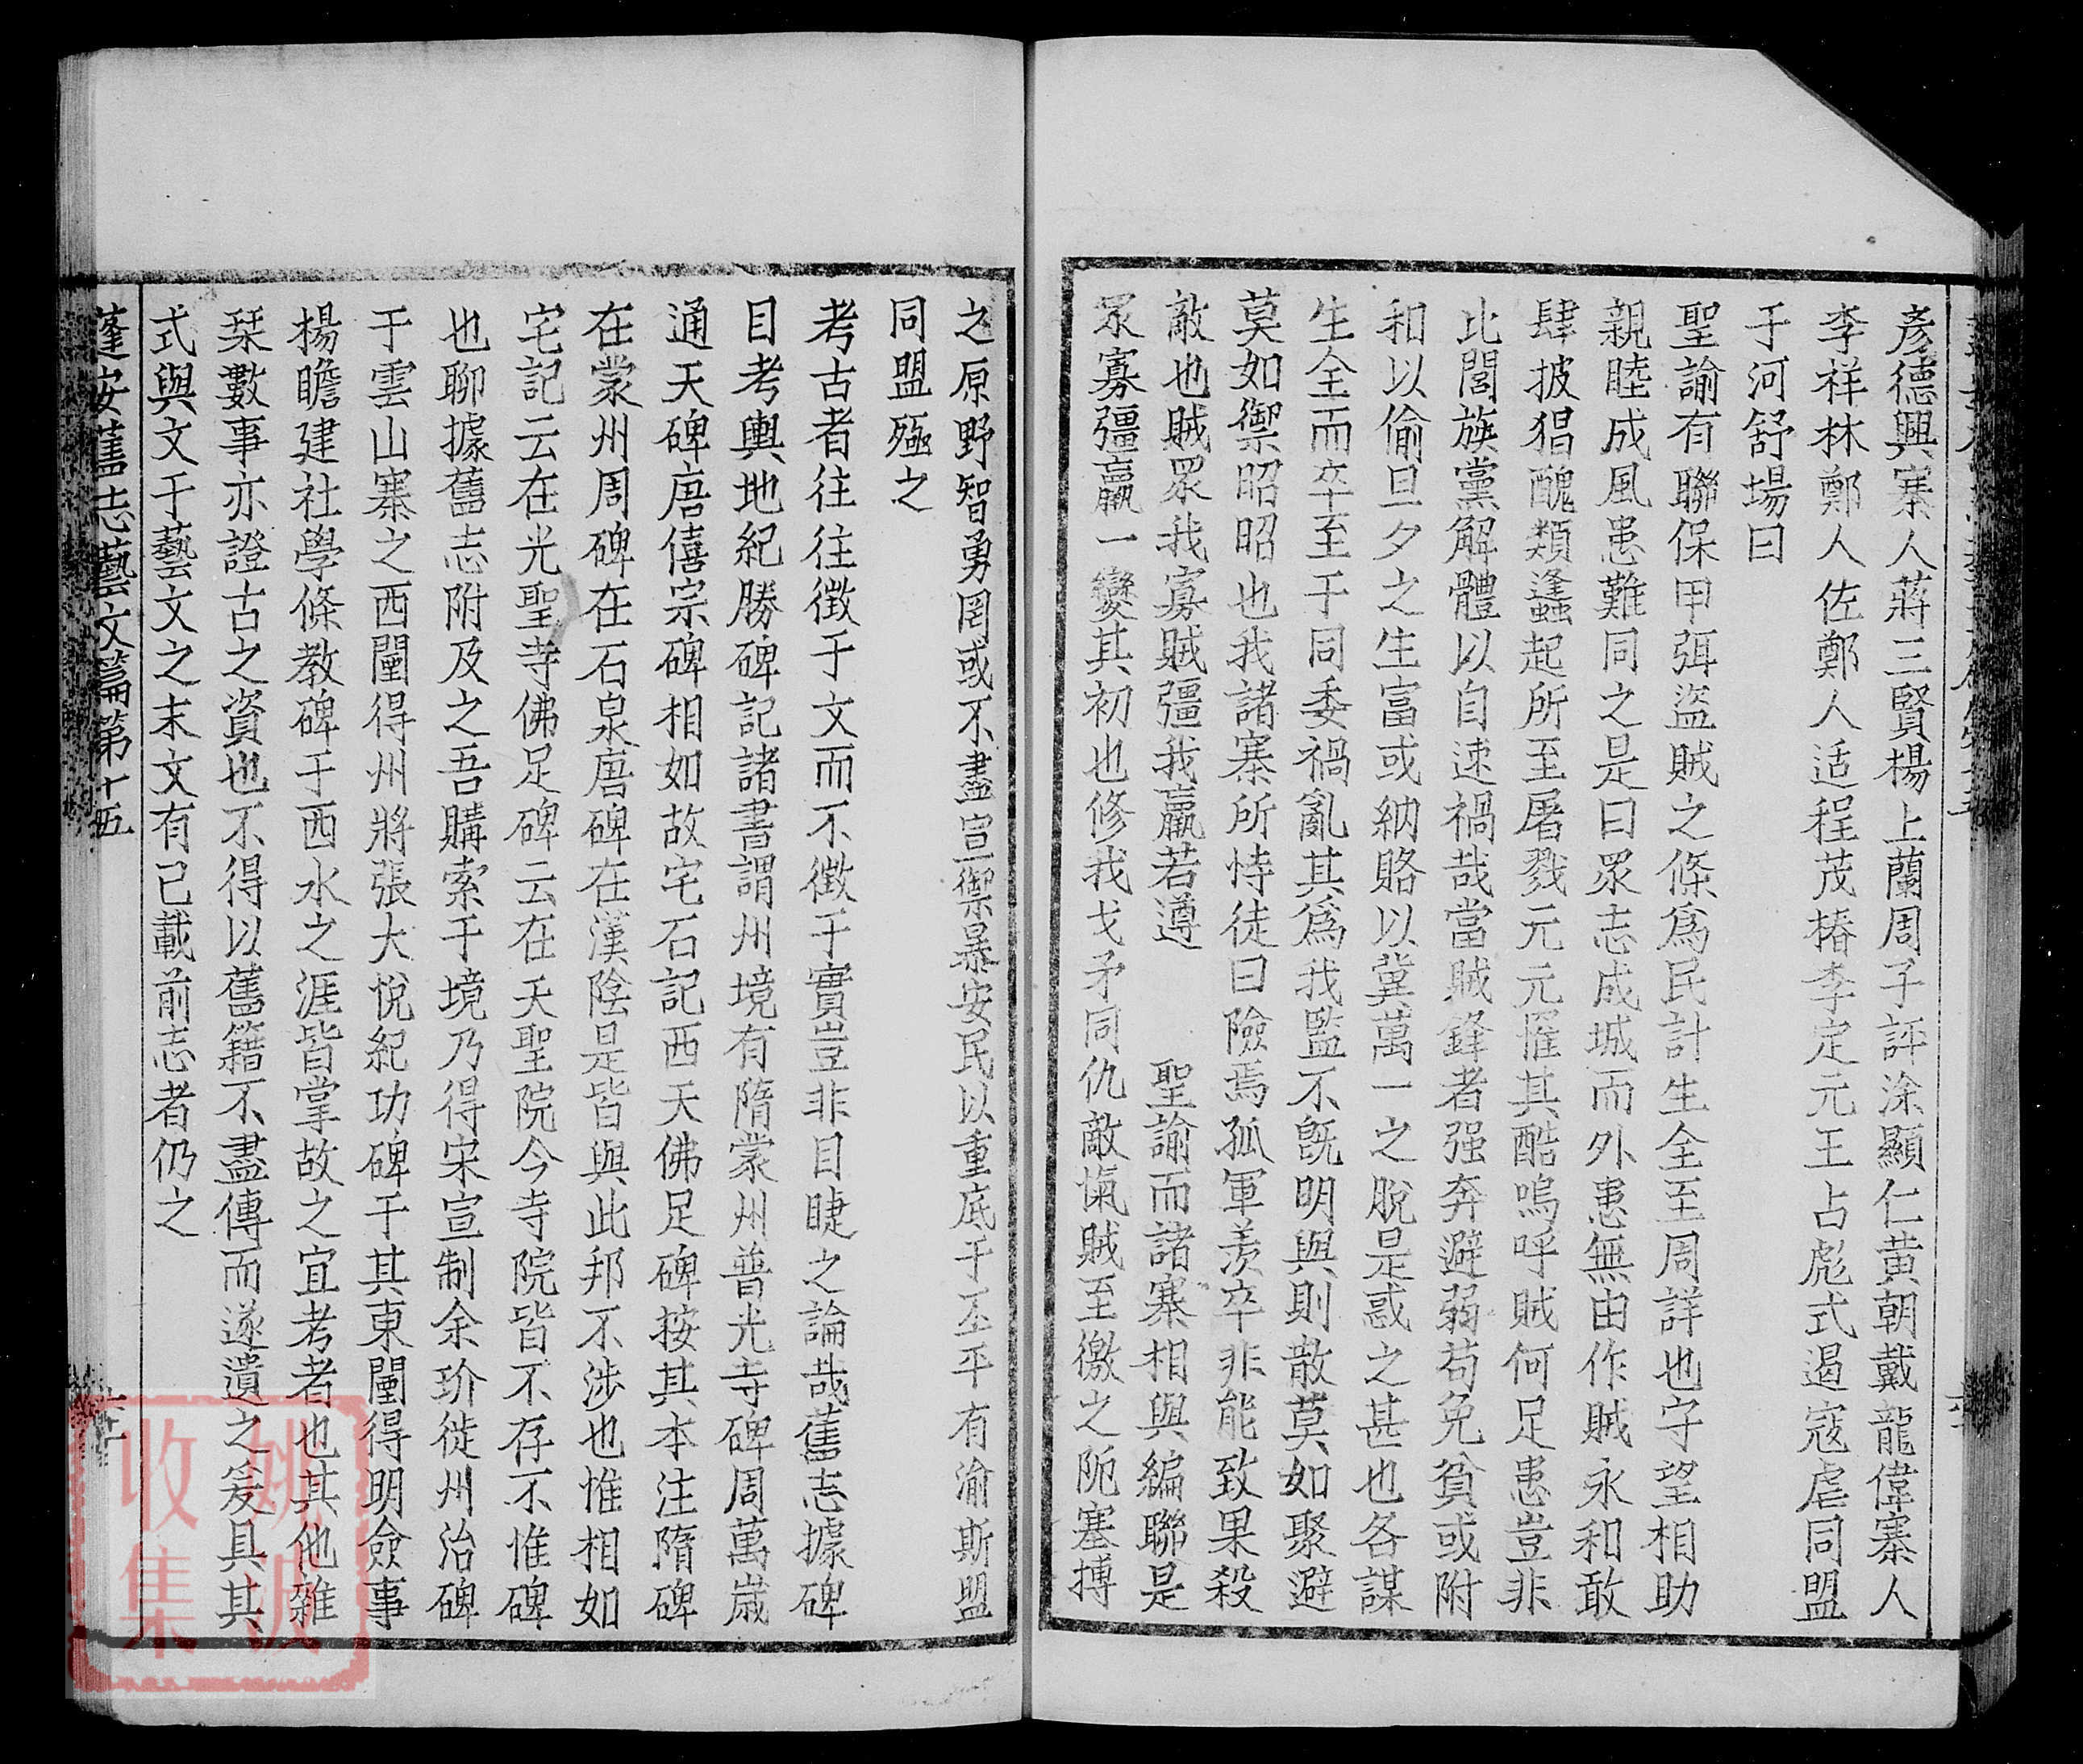 彥德興寨人蔣三賢楊上蘭周子評涂顯仁黄朝戴龍偉寨人
李祥林鄭人佐鄭人适程茂椿李定元王占彪式遏寇虐同盟
于河舒場曰
聖諭有聯保甲弭盜賊之條爲民計生全至周詳也守望相助
親睦成風患難同之是曰眾志成城而外患無由作賊永和敢
肆披猖醜類蠭起所至屠戮元元罹其酷嗚呼賊何足患豈非
比閭族黨解體以自速禍哉當賊鋒者强奔避弱苟免貧或附
和以偷旦夕之生富或納賂以冀萬一之脫是惑之甚也各謀
生全而卒至于同委禍亂其爲我監不旣明與則散莫如聚避
莫如禦昭昭也我諸寨所恃徒曰險焉孤軍羨卒非能致果殺
敵也賊眾我寡賊彊我羸若遵 聖諭而諸寨相與編聯是
眾寡彊羸一變其初也修我戈矛同仇敵愾賊至徼之阨塞搏
之原野智勇罔或不盡宣禦暴安民以重底于丕平有渝斯盟
同盟殛之
考古者往往徵于文而不徵于實豈非目睫之論哉舊志據碑
目考輿地紀勝碑記諸書謂州境有隋蒙州普光寺碑周萬歲
通天碑唐僖宗碑相如故宅石記西天佛足碑按其本注隋碑
在蒙州周碑在石泉唐碑在漢陰是皆與此邦不涉也惟相如
宅記云在光聖寺佛足碑云在天聖院今寺院皆不存不惟碑
也聊據舊志附及之吾購索于境乃得宋宣制余玠徙州治碑
于雲山寨之西闉得州將張大悅紀功碑于其東闉得明僉事
楊瞻建社學條教碑于西水之涯皆掌故之宜考者也其他雜
栞數事亦證古之資也不得以舊籍不盡傳而遂遺之爰具其
式與文于藝文之末文有已載前志者仍之
蓬安舊志藝文篇第十五
姚波
收集